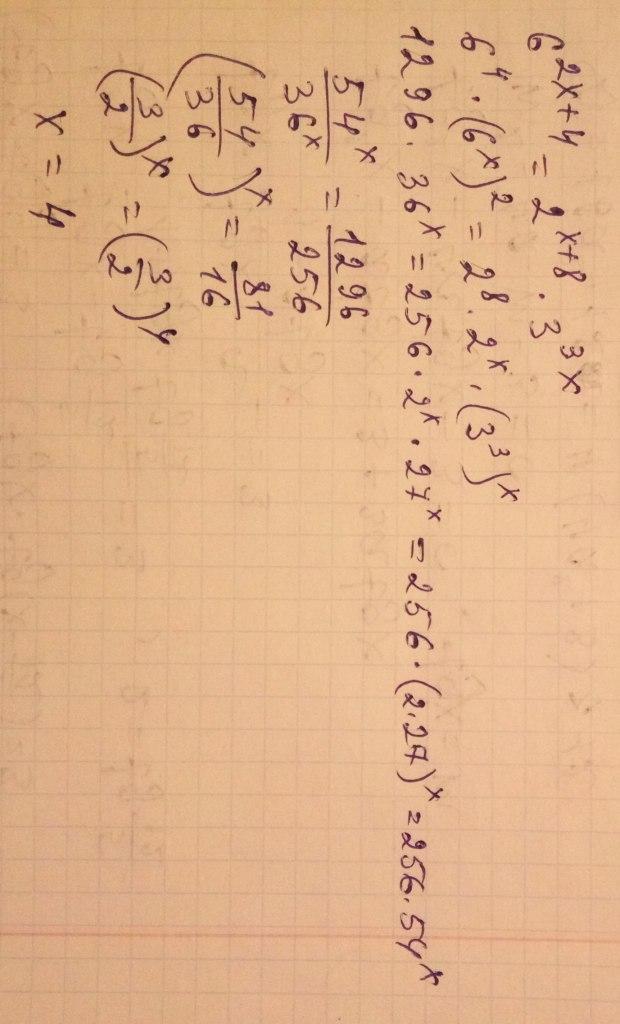 6^{2x+4} = 2^{x+8} · 3^{3x}
6^4 · (6^x)^2 = 2^8 · 2^x · (3^3)^x
1296 · 36^x = 256 · 2^x · 27^x = 256 · (2·27)^x = 256 · 54^x
54^x / 36^x = 1296 / 256
(54/36)^x = 81/16
(3/2)^x = (3/2)^4
x = 4